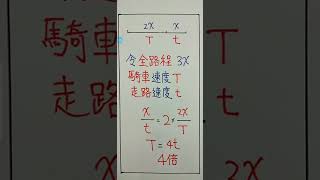 2x x
T t
令全路程 3x
騎車速度 T
走路速度 t
x/t = 2 × 2x/T
T = 4t
4倍